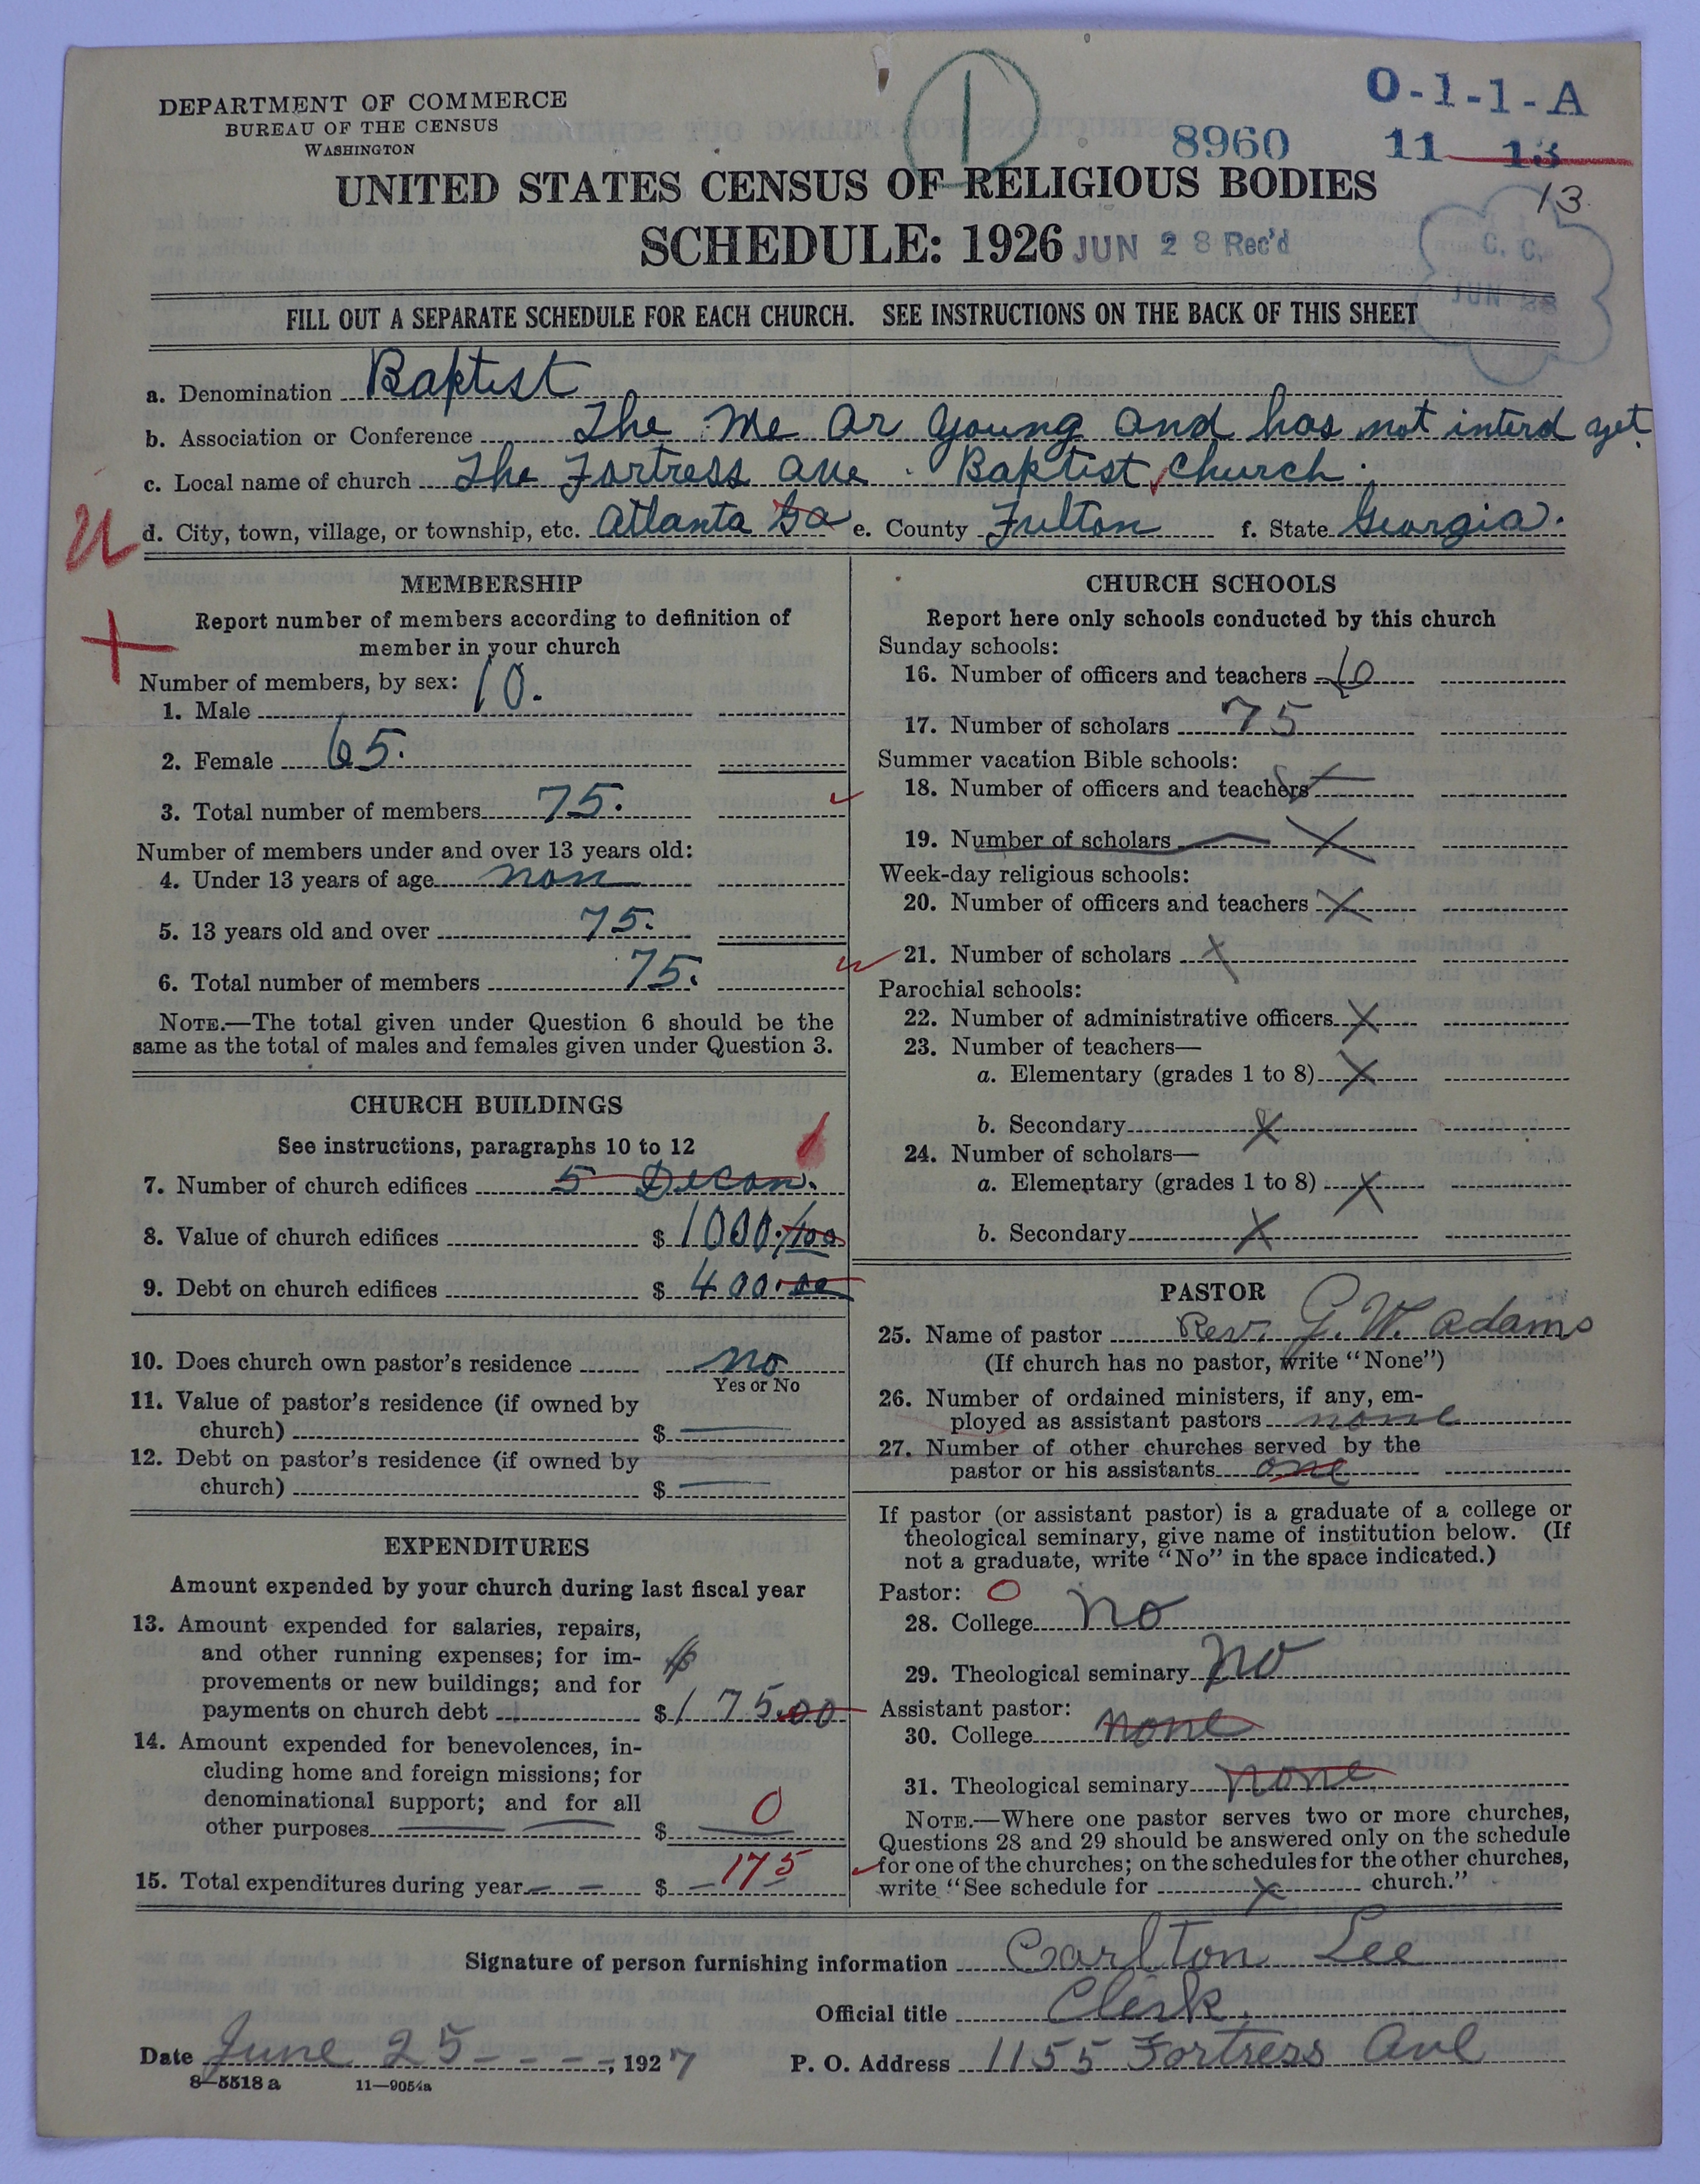 DEPARTMENT OF COMMERCE
BUREAU OF THE CENSUS
WASHINGTON
1
O-1-1-A
8960 11 13
13
UNITED STATES CENSUS OF RELIGIOUS BODIES
SCHEDULE: 1926 JUN 28 Rec'd
C. C.
JUN 28
FILL OUT A SEPARATE SCHEDULE FOR EACH CHURCH. SEE INSTRUCTIONS ON THE BACK OF THIS SHEET
a. Denomination Baptist
b. Association or Conference The Me ar young and has not interd yet.
c. Local name of church The Fortress ave Baptist Church.
U d. City, town, village, or township, etc. Atlanta Ga e. County Fulton f. State Georgia.
MEMBERSHIP
Report number of members according to definition of
member in your church
Number of members, by sex:
1. Male 10.
2. Female 65.
3. Total number of members 75.
Number of members under and over 13 years old:
4. Under 13 years of age non
5. 13 years old and over 75.
6. Total number of members 75.
NOTE.—The total given under Question 6 should be the
same as the total of males and females given under Question 3.
CHURCH BUILDINGS
See instructions, paragraphs 10 to 12
1
7. Number of church edifices 5 Decon.
8. Value of church edifices $ 1000./100
9. Debt on church edifices $ 400.00
10. Does church own pastor's residence no
Yes or No
11. Value of pastor's residence (if owned by
church) $ —
12. Debt on pastor's residence (if owned by
church) $ —
EXPENDITURES
Amount expended by your church during last fiscal year
13. Amount expended for salaries, repairs,
and other running expenses; for im-
provements or new buildings; and for
payments on church debt $ 175.00
14. Amount expended for benevolences, in-
cluding home and foreign missions; for
denominational support; and for all
other purposes $ 0
15. Total expenditures during year $ 175
CHURCH SCHOOLS
Report here only schools conducted by this church
Sunday schools:
16. Number of officers and teachers 10
17. Number of scholars 75
Summer vacation Bible schools:
18. Number of officers and teachers X
19. Number of scholars X
Week-day religious schools:
20. Number of officers and teachers X
21. Number of scholars X
Parochial schools:
22. Number of administrative officers X
23. Number of teachers—
a. Elementary (grades 1 to 8) X
b. Secondary X
24. Number of scholars—
a. Elementary (grades 1 to 8) X
b. Secondary X
PASTOR
25. Name of pastor Rev. G. W. Adams
(If church has no pastor, write "None")
26. Number of ordained ministers, if any, em-
ployed as assistant pastors none
27. Number of other churches served by the
pastor or his assistants one
If pastor (or assistant pastor) is a graduate of a college or
theological seminary, give name of institution below. (If
not a graduate, write "No" in the space indicated.)
Pastor: 0
28. College no
29. Theological seminary no
Assistant pastor:
30. College none
31. Theological seminary none
NOTE.—Where one pastor serves two or more churches,
Questions 28 and 29 should be answered only on the schedule
for one of the churches; on the schedules for the other churches,
write "See schedule for X church."
Signature of person furnishing information Carlton Lee
Official title Clerk.
Date June 25 - - - -, 1927 P. O. Address 1155 Fortress Ave
8—5518a 11—9054a